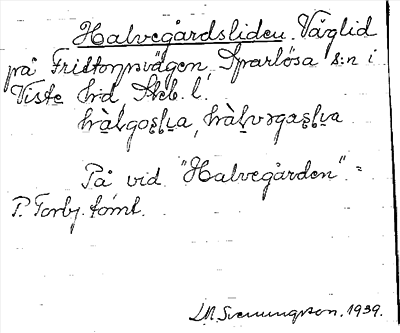 Halvegårdsliden. Väglid
på Fristorpsvägen, Sparlösa s:n i
Viste hrd, Skb. l.
hàlvgoʂlɩa, hàlvəgaʂlɩa
På vid "Halvegården" =
P. Torbj. tomt.
LM. Svenungsson. 1939.